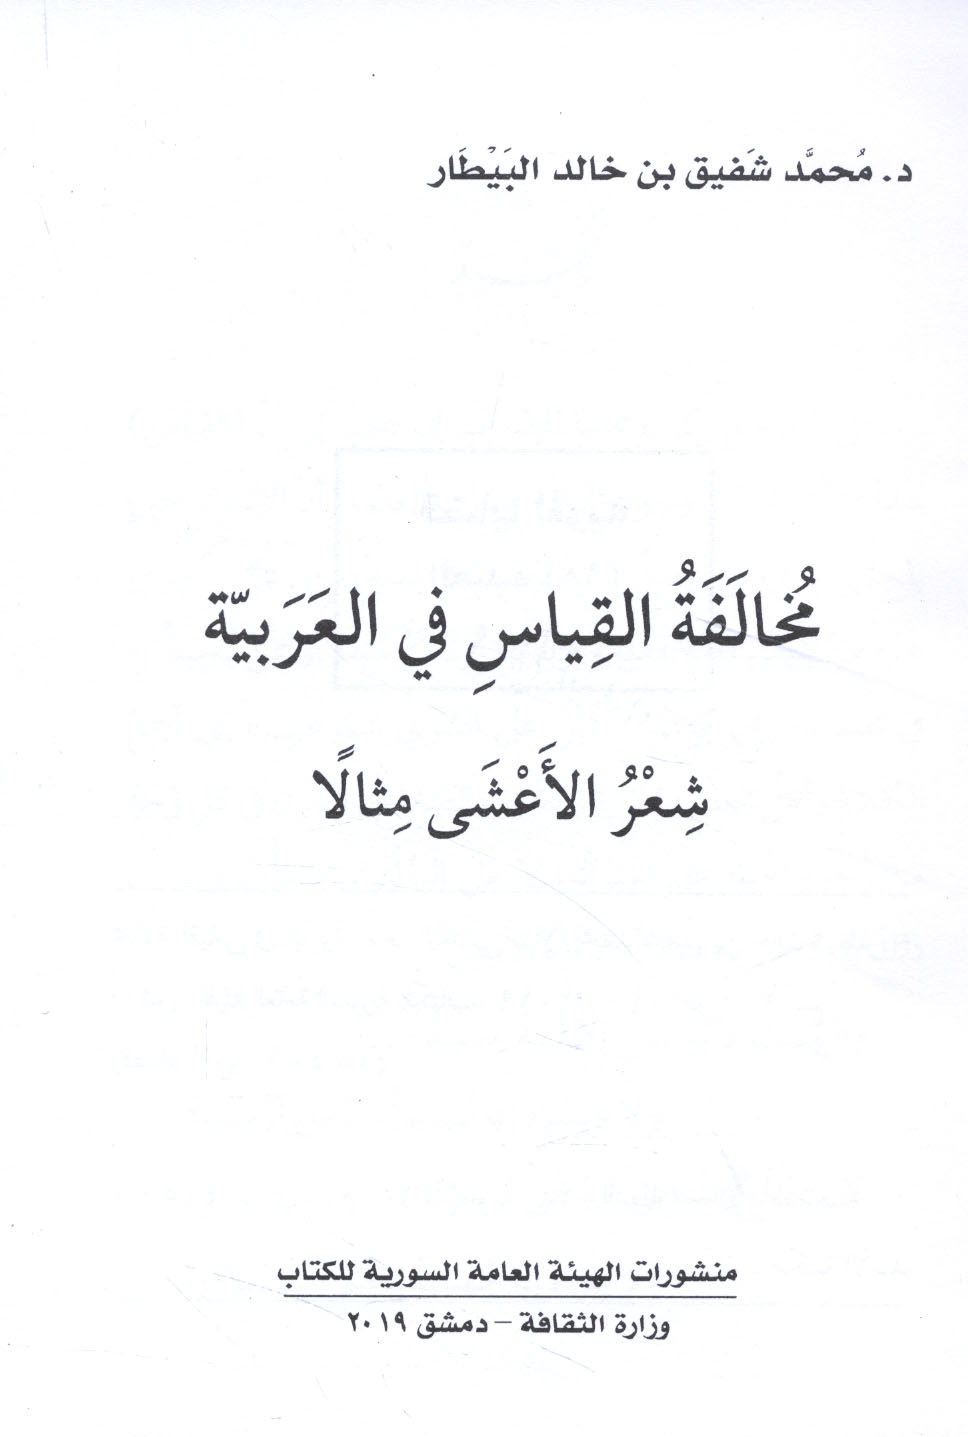 د. مُحمَّد شَفيق بن خالد البَيْطَار
مُخالَفَةُ القِياسِ في العَرَبيّة
شِعْرُ الأَعْشَى مِثالًا
منشورات الهيئة العامة السورية للكتاب
وزارة الثقافة - دمشق ٢٠١٩